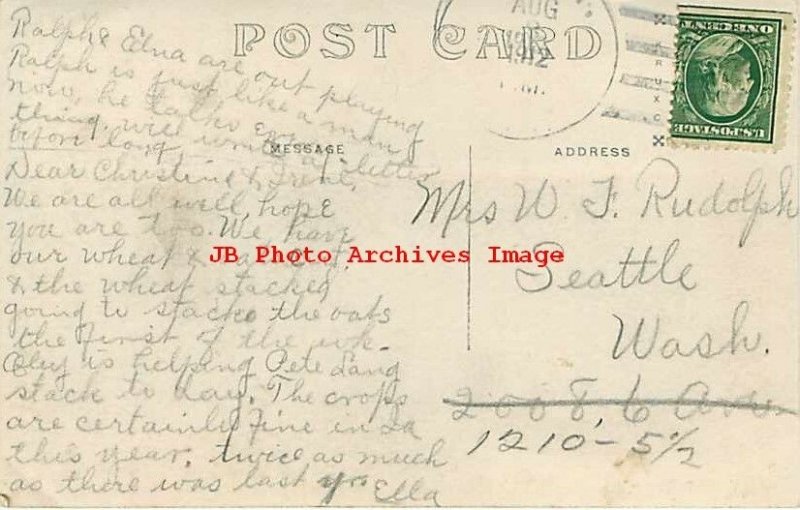 POST CARD
AUG
1912
U.S. POSTAGE
ONE CENT
MESSAGE
ADDRESS
Ralph & Edna are out playing
Ralph is just like a man
now, he talks
thing. will write a letter
before long
Dear Christine & Irene,
We are all well, hope
you are too. We have
our wheat & cut,
& the wheat stacked
going to stack the oats
the first of the wk-
is helping Pete Lang
stack to day. The crops
are certainly fine in Ia
this year. twice as much
as there was last yr. Ella
Mrs W. F. Rudolph
Seattle
Wash.
2008, 6 Ave
1210 - 5 1/2
JB Photo Archives Image